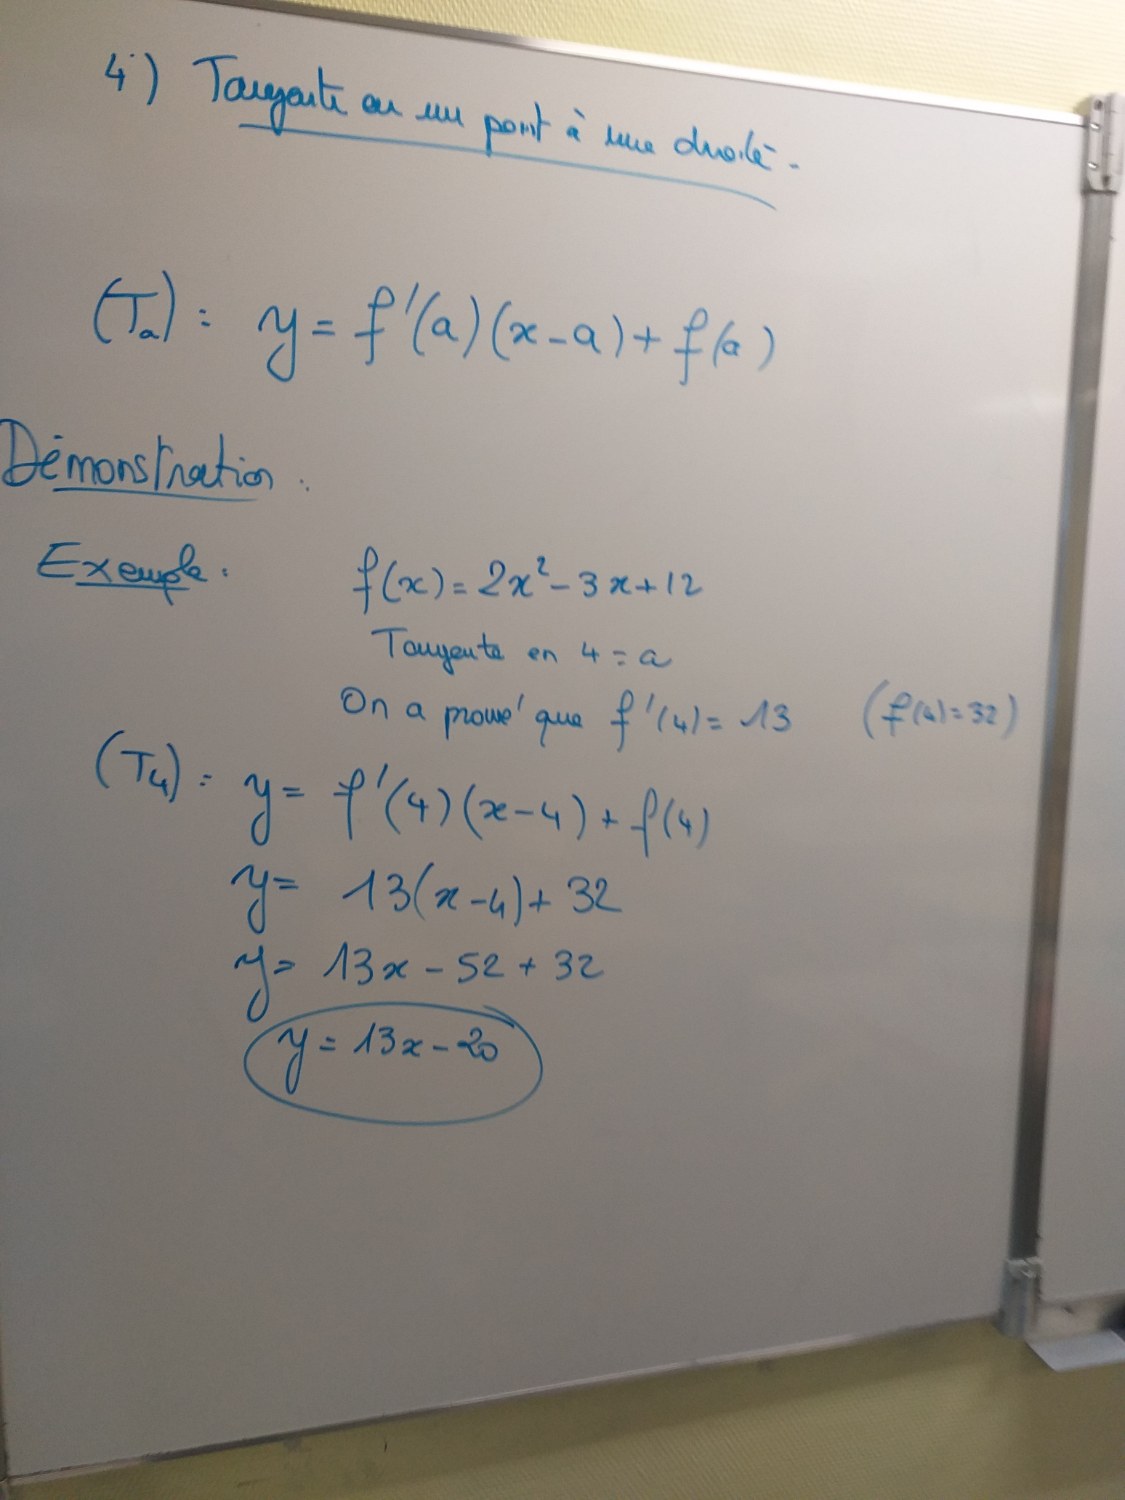 4) Tangente en un point à une droite.
(Ta) : y = f'(a)(x-a) + f(a)
Démonstration :
Exemple : f(x) = 2x² - 3x + 12
Tangente en 4 = a
On a prouvé que f'(4) = 13 (f(4) = 32)
(T4) : y = f'(4)(x-4) + f(4)
y = 13(x-4) + 32
y = 13x - 52 + 32
y = 13x - 20